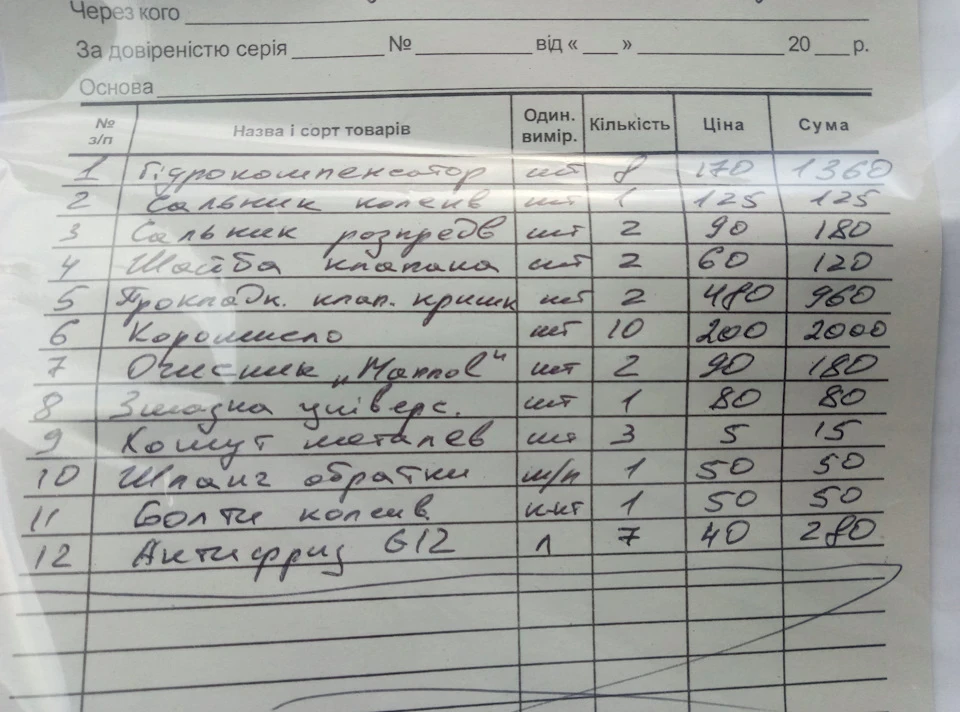 Через кого
За довіреністю серія № від « » 20 р.
Основа
№ з/п Назва і сорт товарів Один. вимір. Кількість Ціна Сума
1 Гідрокомпенсатор шт 8 170 1360
2 Сальник колінв шт 1 125 125
3 Сальник розпредв шт 2 90 180
4 Шайба клапана шт 2 60 120
5 Прокладк. клап. кришк шт 2 480 960
6 Коромисло шт 10 200 2000
7 Очисник „Mannol" шт 2 90 180
8 Змазка універс. шт 1 80 80
9 Хомут металев шт 3 5 15
10 Шланг обратки м/п 1 50 50
11 Болти колінв к-кт 1 50 50
12 Антифриз G12 л 7 40 280